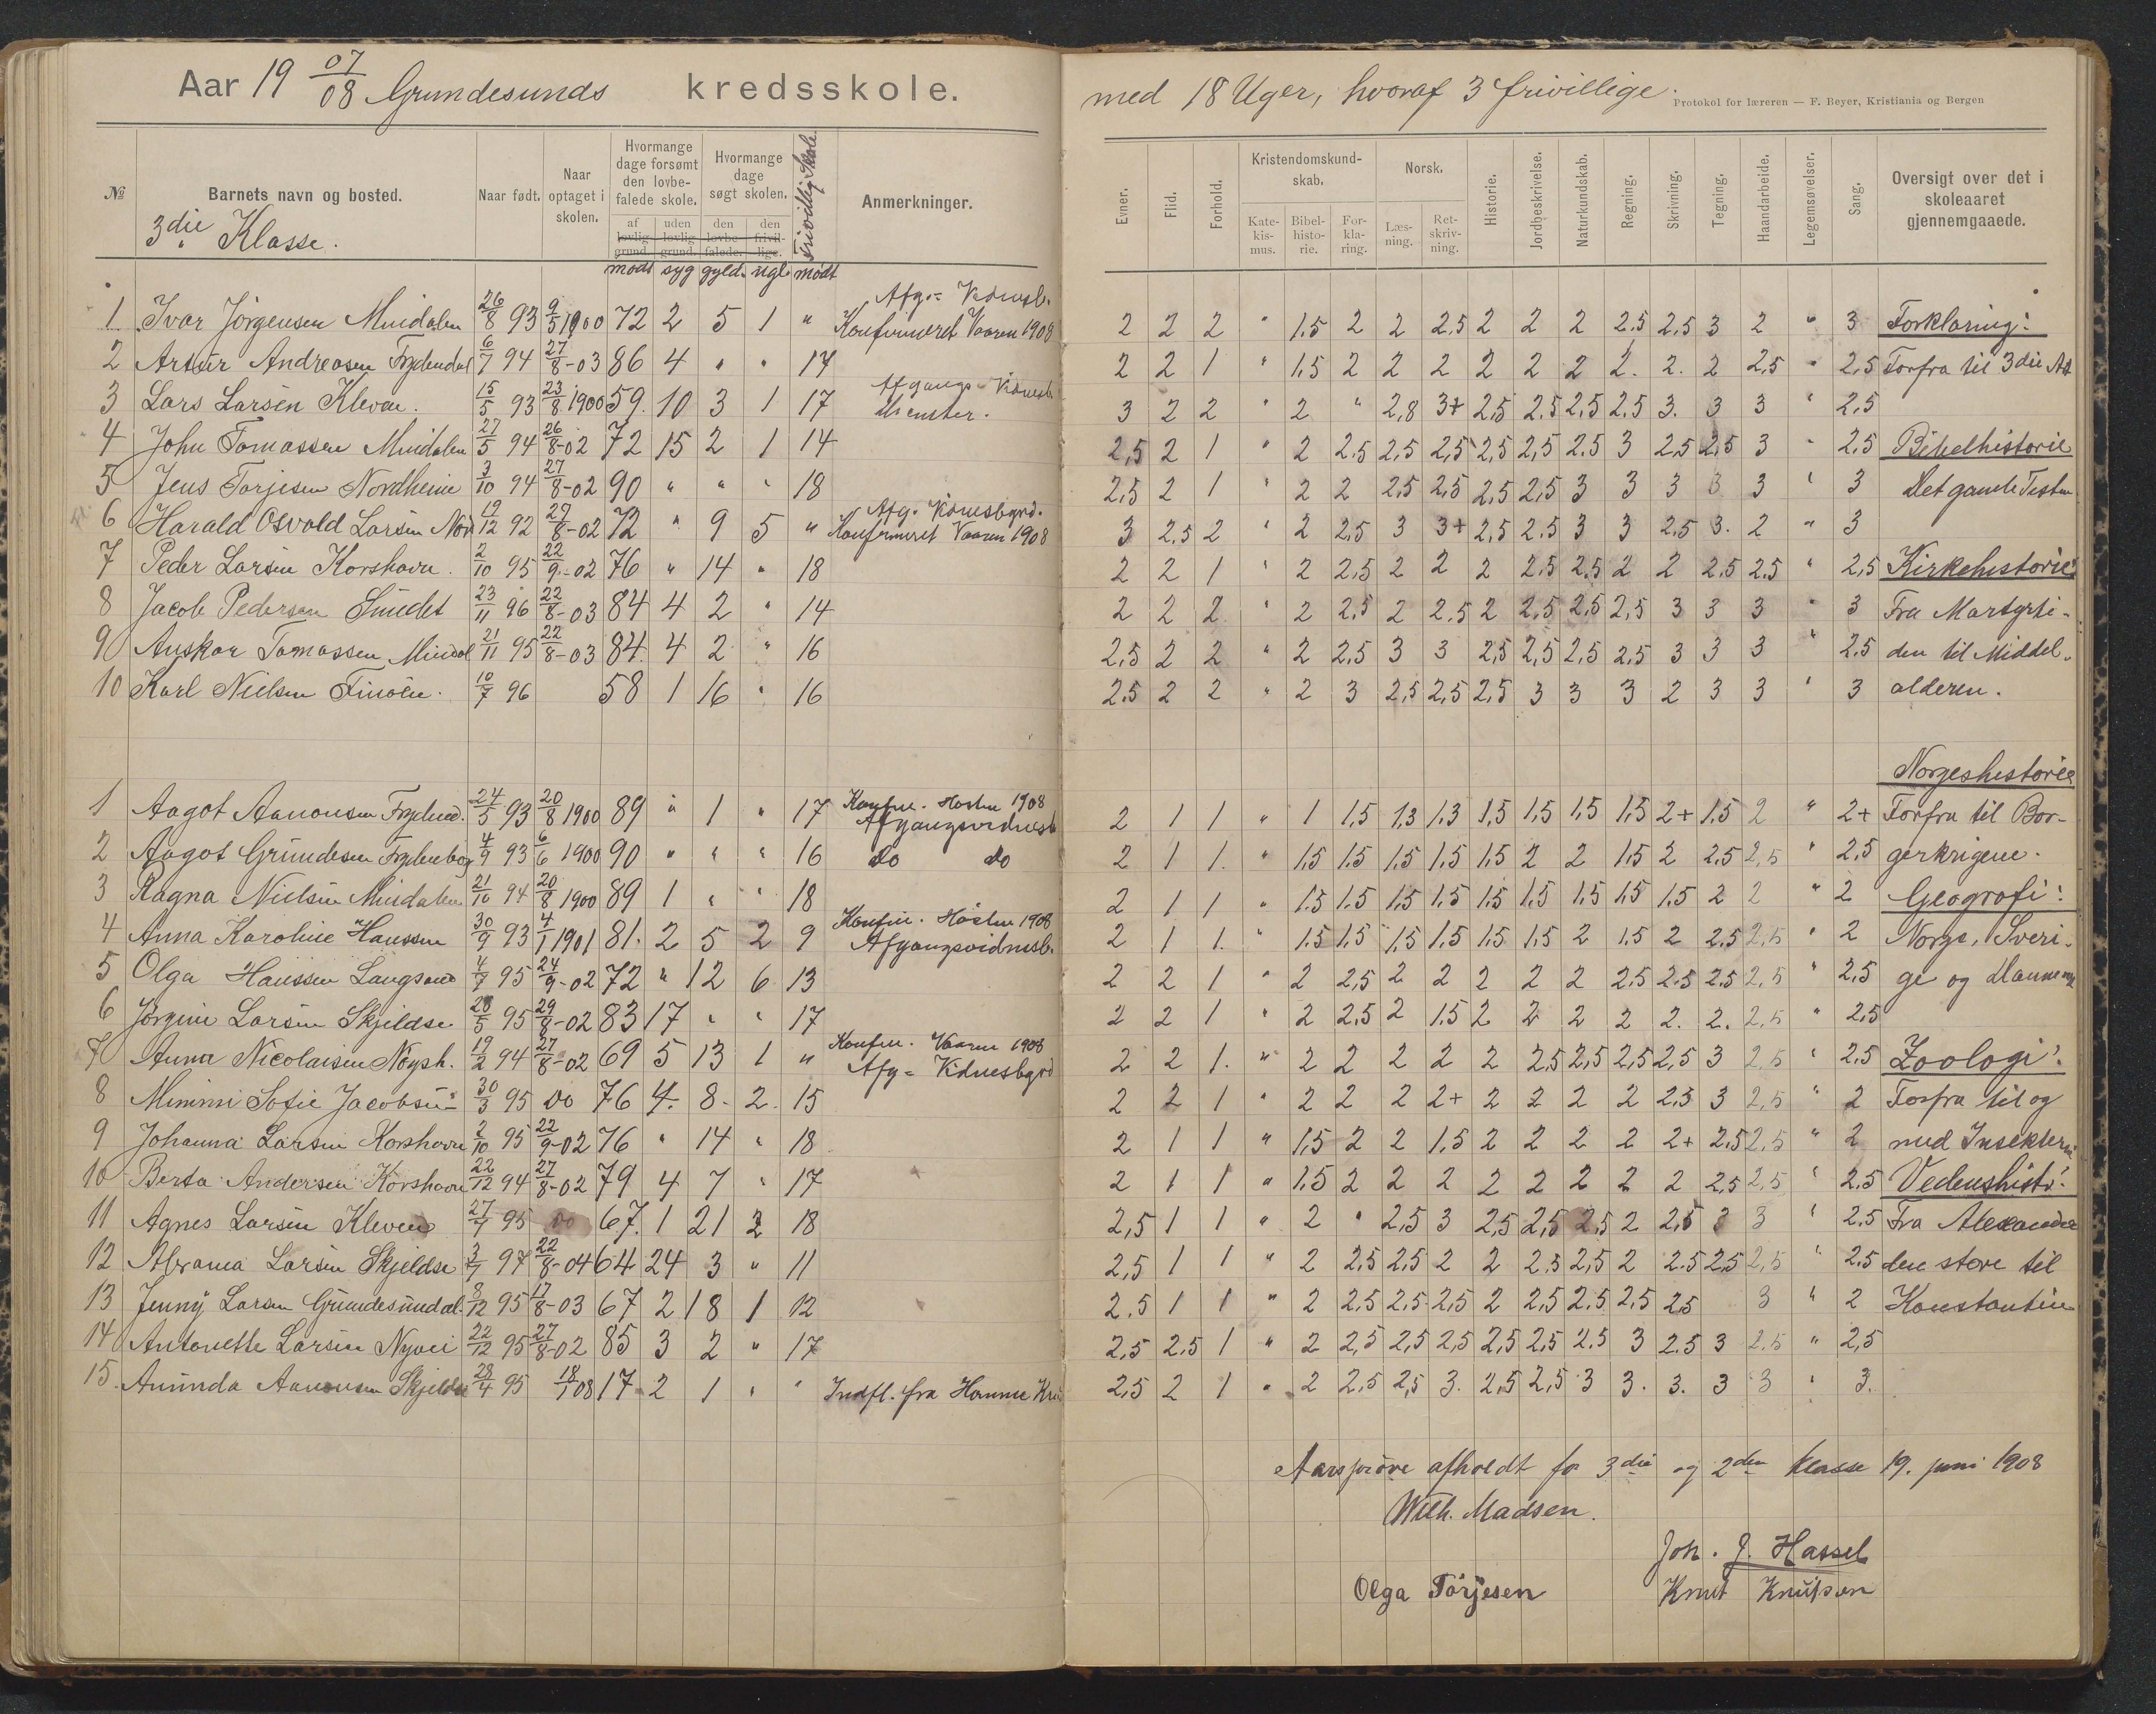 Aar 19 07/08 Grundesunds kredsskole.
med 18 Uger, hvoraf 3 frivillige.
Protokol for læreren — F. Beyer, Kristiania og Bergen
№ | Barnets navn og bosted. | Naar født. | Naar optaget i skolen. | Hvormange dage forsømt den lovbefalede skole. af lovlig grund. uden lovlig grund. | Hvormange dage søgt skolen. den lovbefalede. den frivillige. | Frivillig Skole. | Anmerkninger.
3die Klasse.
mødt syg gyld. ugl. mødt
Evner. | Flid. | Forhold. | Kristendomskundskab. Katekismus. Bibelhistorie. Forklaring. | Norsk. Læsning. Retskrivning. | Historie. | Jordbeskrivelse. | Naturkundskab. | Regning. | Skrivning. | Tegning. | Haandarbeide. | Legemsøvelser. | Sang. | Oversigt over det i skoleaaret gjennemgaaede.
1 Ivar Jörgensen 26/8 93 9/5 1900 72 2 5 1 " Afg.= Vidnesb. Konfirmeret Vaaren 1908 2 2 2 " 1.5 2 2 2.5 2 2 2 2.5 2.5 3 2 " 3 Forklaring:
2 Artur Andreasen 6/7 94 27/8-03 86 4 " " 17 2 2 1 " 1.5 2 2 2 2 2 2 2. 2. 2 2,5 " 2,5 Forfra til 3die Art
3 Lars Larsen Kleven. 15/5 93 23/8 1900 59. 10 3 1 17 Afgangs-Vidnesb. 3 2 2 " 2 " 2,8 3+ 2,5 2.5 2,5 2.5 3. 3 3 " 2,5
4 John Tomassen 27/5 94 26/8-02 72 15 2 1 14 2,5 2 1 " 2 2.5 2,5 2,5 2,5 2,5 2.5 3 2,5 2,5 3 " 2.5 Bibelhistorie
5 Jens Torjesen Nordheim 3/10 94 27/8-02 90 " " " 18 2,5 2 1 " 2 2 2,5 2,5 2,5 2,5 3 3 3 3 3 " 3 Det gamle Testm
6 Harald Osvald Larsen 19/12 92 27/8-02 72 " 9 5 " Afg. Vidnesbyrd. Konfirmeret Vaaren 1908 3 2.5 2 " 2 2,5 3 3+ 2,5 2.5 3 3 2.5 3. 2 " 3
7 Peder Larsen Korshavn. 2/10 95 22/9-02 76 " 14 " 18 2 2 1 " 2 2,5 2 2 2 2.5 2.5 2 2 2.5 2.5 " 2,5 Kirkehistorie:
8 Jacob Pedersen Sundet 23/11 96 22/8-03 84 4 2 " 14 2 2 2 " 2 2,5 2 2.5 2 2,5 2,5 2,5 3 3 3 " 3 Fra Martyrti-
9 Anskar Tomassen 21/11 95 22/8-03 84. 4 2 " 16 2,5 2 2 " 2 2,5 3 3 2,5 2,5 2,5 2,5 3 3 3 " 2.5 den til Middel-
10 Karl Nielsen 10/7 96 58 1 16 " 16 2.5 2 2 " 2 3 2,5 2,5 2,5 3 3 3 2 3 3 " 3 alderen.
Norgeshistorie
1 Aagot Aanonsen 24/5 93 20/8 1900 89 " 1 " 17 Konfir. Høsten 1908 Afgangsvidnesb 2 1 1 " 1 1.5 1,3 1.3 1,5 1,5 1,5 1,5 2+ 1.5 2 " 2+ Forfra til Bor-
2 Aagot Grundesen 4/9 93 6/6 1900 90 " " " 16 do do 2 1 1. " 1.5 1.5 1.5 1,5 1.5 2 2 1.5 2 2.5 2,5 " 2.5 gerkrigene.
3 Ragna Nielsen 21/10 94 20/8 1900 89 1 " " 18 2 1 1 " 1.5 1.5 1.5 1,5 1.5 1,5 1,5 1,5 1.5 2 2 " 2 Geografi:
4 Anna Karoline Hanssen 30/9 93 4/1 1901 81. 2 5 2 9 Konfir. Høsten 1908 Afgangsvidnesb. 2 1 1. " 1.5 1.5 1,5 1.5 1.5 1.5 2 1.5 2 2.5 2,5 " 2 Norge, Sveri-
5 Olga Hanssen 4/7 95 24/9-02 72 " 12 6 13 2 2 1 " 2 2,5 2 2 2 2 2 2.5 2.5 2.5 2,5 " 2,5 ge og Danmark
6 Jörgine Larsen Skjeldsø 28/5 95 29/8-02 83 17 " " 17 2 2 1 " 2 2.5 2 1.5 2 2 2 2 2. 2. 2,5 " 2,5
7 Anna Nicolaisen 19/2 94 27/8-02 69 5 13 1 " Konfir. Vaaren 1908 Afg= Vidnesbyrd 2 2 1. " 2 2 2 2 2 2,5 2,5 2,5 2,5 3 2,5 " 2.5 Zoologi:
8 Minni Sofie Jacobsen 30/3 95 Do 76 4. 8- 2. 15 2 2 1 " 2 2 2 2+ 2 2 2 2 2,5 3 2,5 " 2 Forfra til og
9 Johanna Larsen Korshavn 2/10 95 22/9-02 76 " 14 " 18 2 1 1 " 1,5 2 2 1,5 2 2 2 2 2+ 2,5 2,5 " 2 med Insekterne
10 Berta Andersen Korshavn 22/12 94 27/8-02 79 4 7 " 17 2 1 1 " 1.5 2 2 2 2 2 2 2 2 2,5 2,5 " 2.5 Vedenshisto:
11 Agnes Larsen Kleven 27/7 95 Do 67. 1 21 2 18 2,5 1 1 " 2 " 2,5 3 2,5 2,5 2,5 2 2,5 3 3 " 2.5 Fra Alexander
12 Abrama Larsen Skjeldsø 97 22/8-04 64 24 3 " 11 2,5 1 1 " 2 2,5 2,5 2 2 2.5 2,5 2 2.5 2.5 2,5 " 2.5 den store til
13 Jenny Larsen Grundesundal 8/12 95 17/8-03 67 2 18 1 12 2.5 1 1 " 2 2.5 2.5 2,5 2 2,5 2.5 2,5 2,5 3 " 2 Konstantin
14 Antonette Larsen 22/12 95 27/8-02 85 3 2 " 17 2,5 2.5 1 " 2 2,5 2,5 2,5 2,5 2,5 2.5 3 2.5 3 2,5 " 2,5
15. Aanonsen Skjeldsø 28/4 95 18/1 08 17 2 1 " " Indfl. fra 2,5 2 1 " 2 2,5 2,5 3. 2,5 2,5 3 3. 3. 3 3 " 3.
Aarsprøve afholdt for 3die og 2den klasse 19. juni 1908
Wilh. Madsen.
Joh. J. Hassel
Olga Törjesen Knut Knutson